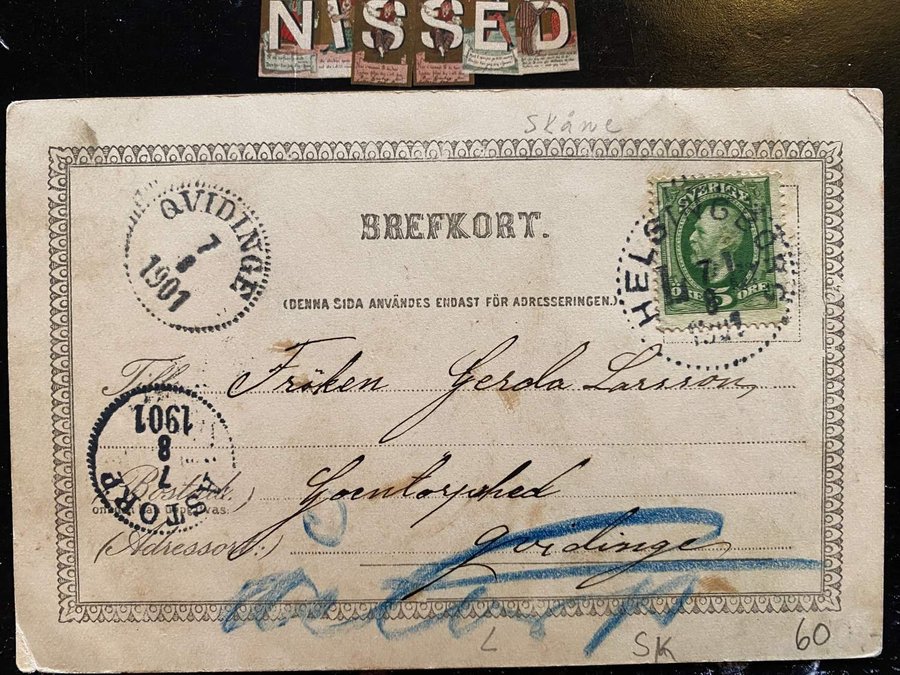 NISSED
Skåne
QVIDINGE
7
8
1901
BREFKORT.
SVERIGE
5 ÖRE
HELSINGBORG
7 8
1901
(DENNA SIDA ANVÄNDES ENDAST FÖR ADRESSERINGEN.)
Till Fröken Gerda Larsson,
ÅSTORP
7
8
1901
Bostad
Goentorphed
(Adressort:) Qvidinge
L
SK
60